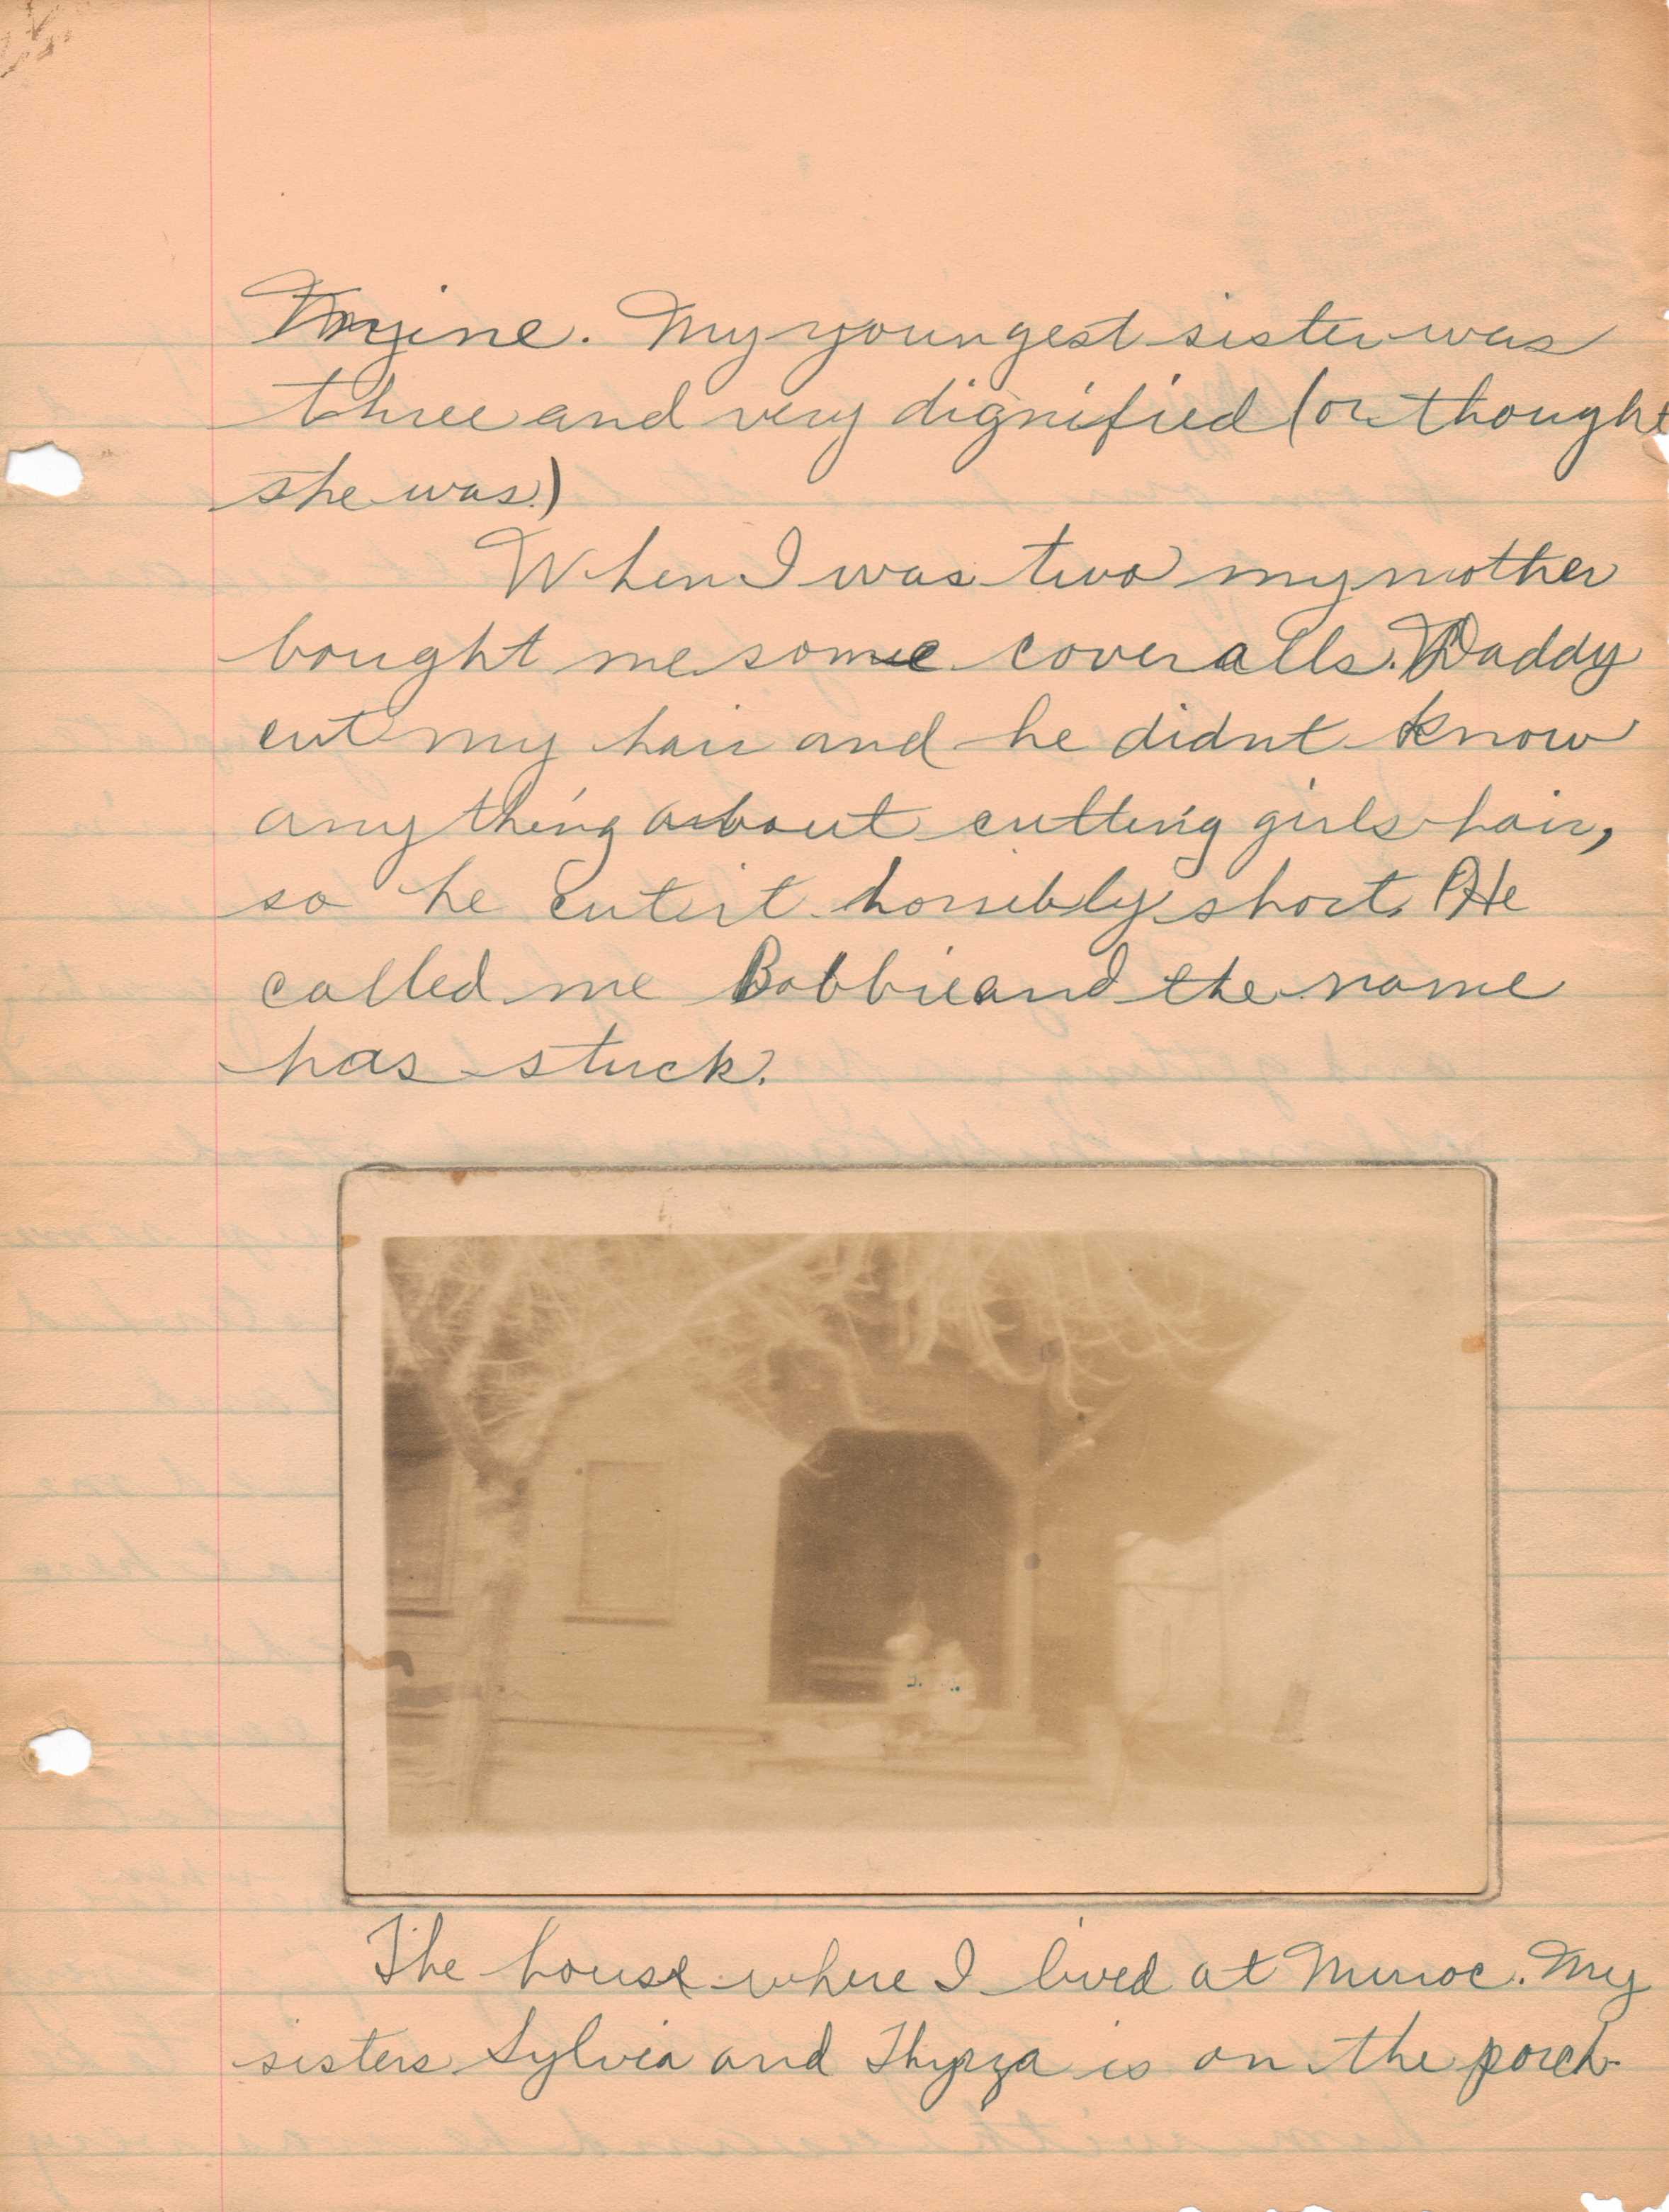 mine. My youngest sister was
three and very dignified (or thought
she was.)
When I was two my mother
bought me some coveralls. Daddy
cut my hair and he didnt know
any thing about cutting girls hair,
so he cut it horribly short. He
called me Bobbie and the name
has stuck.
The house where I lived at Muroc. My
sisters Sylvia and Thyrza is on the porch